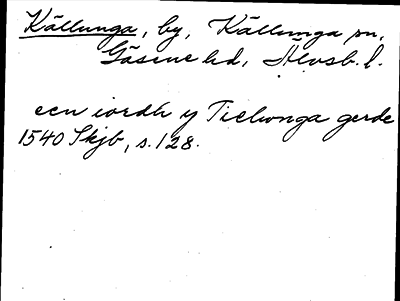 Källunga, by, Källunga sn,
Gäsene hd, Älvsb. l.
een iordh y Tielwnga gerde
1540 Skjb, s. 128.